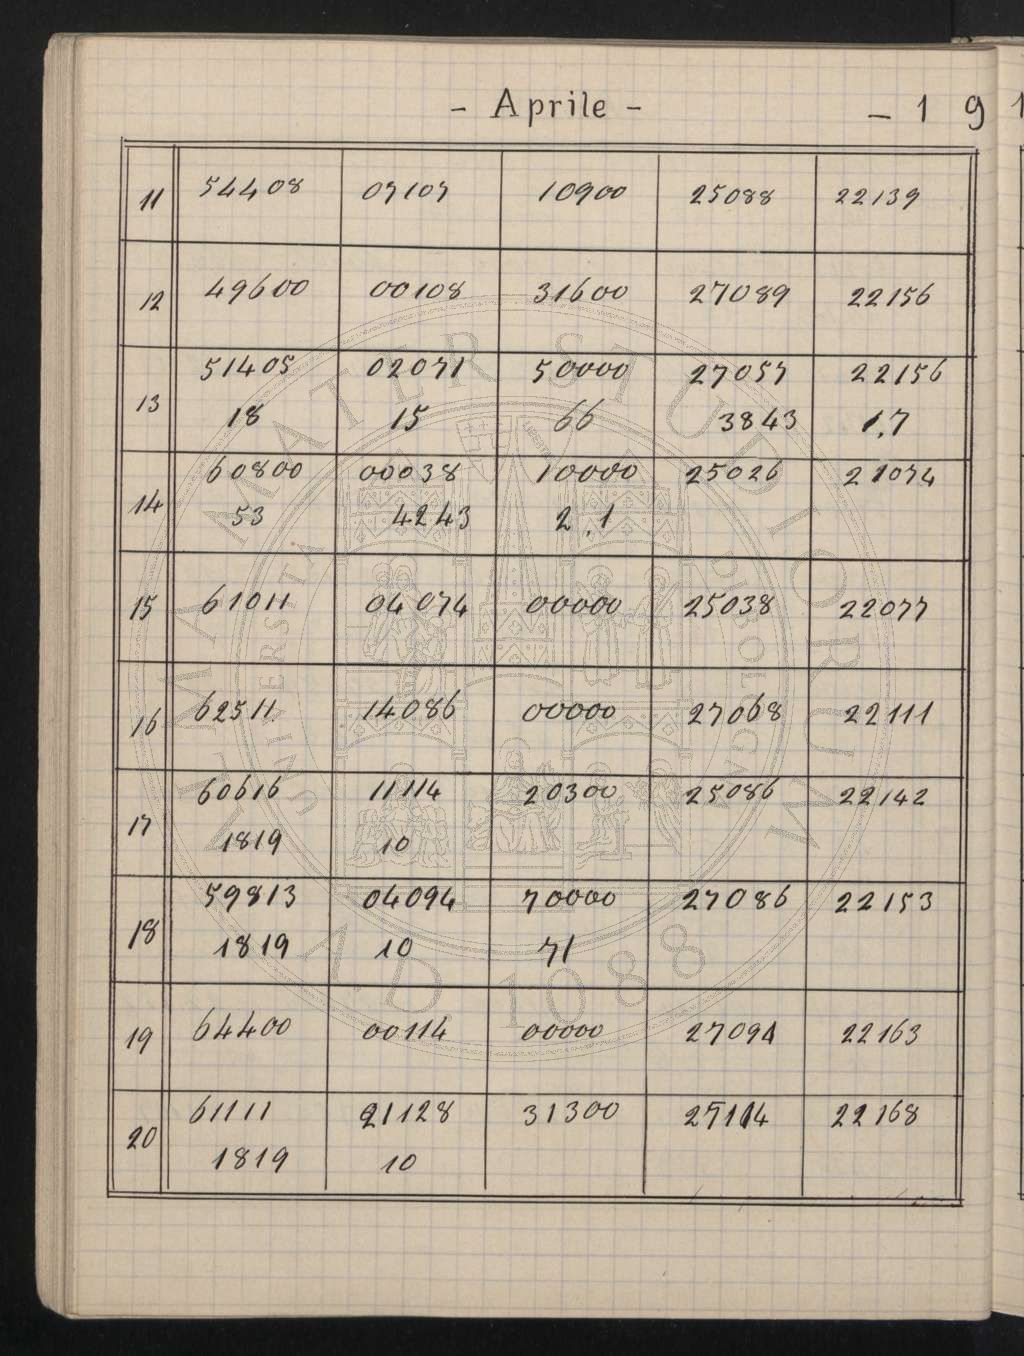 - Aprile - - 1 9 1
11 54408 07107 10900 25088 22139
12 49600 00108 31600 27089 22156
51405 02071 50000 27057 22156
13 18 15 66 3843 1,7
60800 00038 10000 25026 21074
14 53 4243 2,1
15 61011 04074 00000 25038 22077
16 62511 14086 00000 27068 22111
60616 11114 20300 25086 22142
17 1819 10
59813 04094 70000 27086 22153
18 1819 10 71
19 64400 00114 00000 27091 22163
61111 21128 31300 22168
20 1819 10
ALMA MATER STUDIORUM
UNIVERSITAS DI BOLOGNA
A.D. 1088